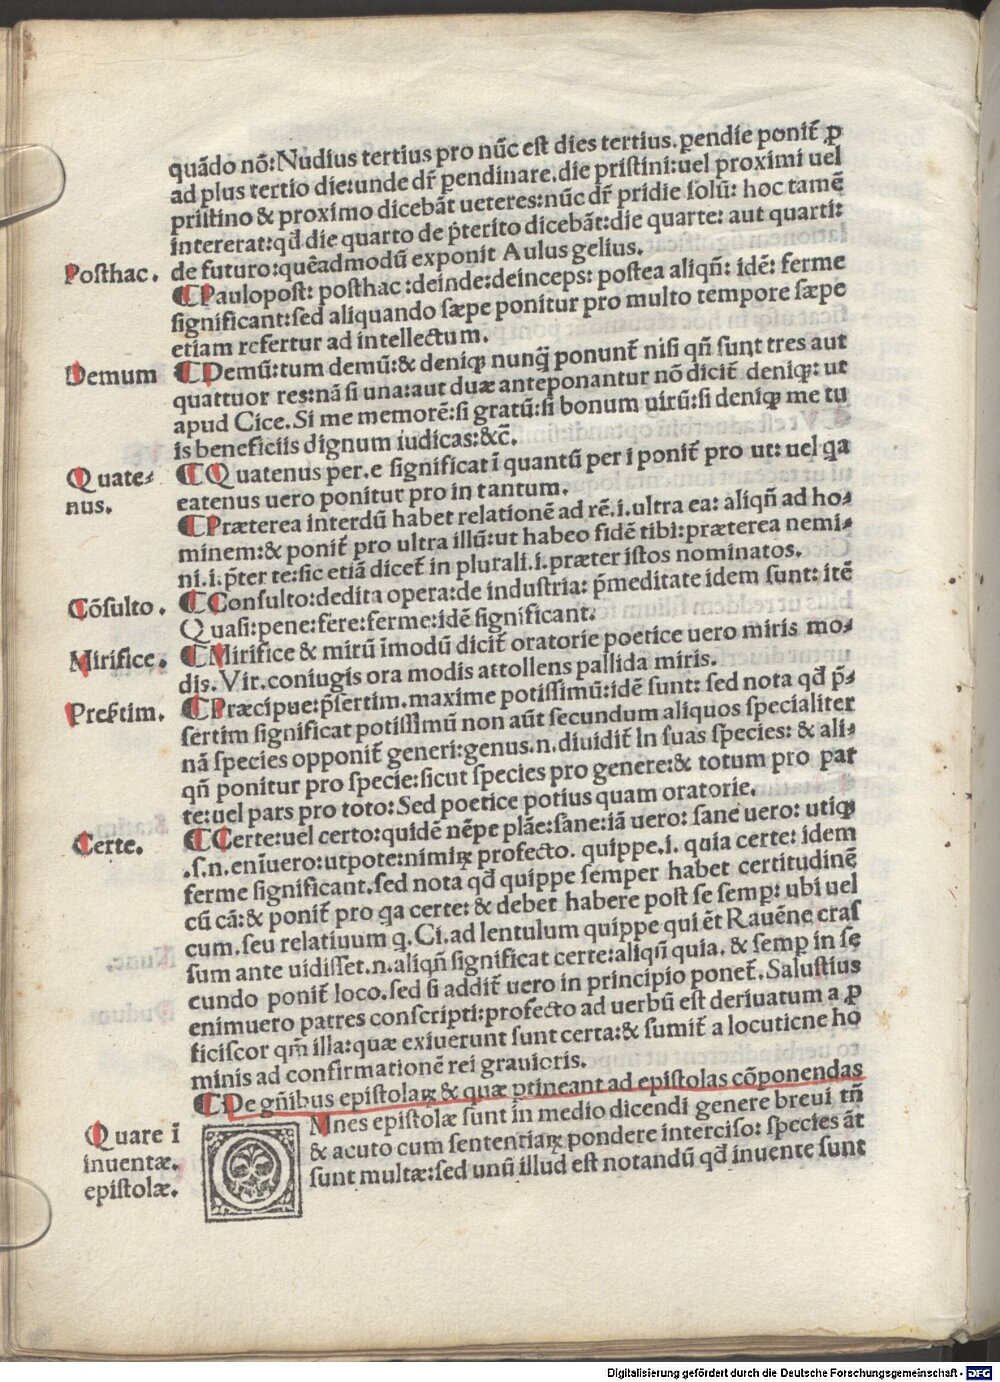 quādo nō: Nudius tertius pro nūc est dies tertius. ꝑendie ponit̄ ꝓ
ad plus tertio die: unde dr̄ ꝑendinare. die pristini: uel proximi uel
pristino & proximo dicebāt ueteres: nūc dr̄ pridie solū: hoc tamē
intererat: qđ die quarto de p̄terito dicebāt: die quarte: aut quarti:
Posthac. de futuro: quēadmodū exponit Aulus gelius.
¶ Paulopost: posthac: deinde: deinceps: postea aliqn̄: idē: ferme
significant: sed aliquando sæpe ponitur pro multo tempore sæpe
etiam refertur ad intellectum.
Demum ¶ Demū: tum demū: & deniqꝫ nunq̄ ponunt̄ nisi qn̄ sunt tres aut
quattuor res: nā si una: aut duæ anteponantur nō dicit̄ deniqꝫ: ut
apud Cice. Si me memorē: si gratū: si bonum uirū: si deniqꝫ me tu
is beneficiis dignum iudicas: &c̄.
Quate⸗ ¶ Quatenus per. e significat ī quantū per i ponit̄ pro ut: uel qa
nus. eatenus uero ponitur pro in tantum.
¶ Præterea interdū habet relationē ad rē. i. ultra ea: aliqn̄ ad ho⸗
minem: & ponit̄ pro ultra illū: ut habeo fidē tibi: præterea nemi⸗
ni. i. p̄ter te: sic etiā dicet̄ in plurali. i. præter istos nominatos.
Cōsulto. ¶ Consulto: dedita opera: de industria: p̄meditate idem sunt: itē
Quasi: pene: fere: ferme: idē significant.
Mirifice. ¶ Mirifice & mirū īmodū dicit̄ oratorie poetice uero miris mo⸗
dis. Vir. coniugis ora modis attollens pallida miris.
Presertim. ¶ Præcipue: p̄sertim. maxime potissimū: idē sunt: sed nota qđ p̄⸗
sertim significat potissimū non aūt secundum aliquos specialiter
nā species opponit̄ generi: genus. n. diuidit̄ in suas species: & ali⸗
qn̄ ponitur pro specie: sicut species pro genere: & totum pro par
te: uel pars pro toto: Sed poetice potius quam oratorie.
Certe. ¶ Certe: uel certo: quidē nēpe plāe: sane: iā uero: sane uero: utiqꝫ
.s. n. enīuero: utpote: nimiꝝ profecto. quippe. i. quia certe: idem
ferme significant. sed nota qđ quippe semper habet certitudinē
cū cā: & ponit̄ pro qa certe: & debet habere post se semꝑ: ubi uel
cum. seu relatiuum q. Ci. ad lentulum quippe qui ēt Rauēne cras
sum ante uidisset. n. aliqn̄ significat certe: aliqn̄ quia. & semꝑ in se
cundo ponit̄ loco. sed si addit̄ uero in principio ponet̄. Salustius
enimuero patres conscripti: profecto ad uerbū est deriuatum a ꝓ
ficiscor qm̄ illa: quæ exiuerunt sunt certa: & sumit̄ a locutione ho
minis ad confirmationē rei grauioris.
¶ De gn̄ibus epistolaꝝ & quæ ꝑtineant ad epistolas cōponendas
Quare ī OMnes epistolæ sunt in medio dicendi genere breui tn̄
inuentæ. & acuto cum sententiaꝝ pondere interciso: species āt
epistolæ. sunt multæ: sed unū illud est notandū qđ inuente sunt
Digitalisierung gefördert durch die Deutsche Forschungsgemeinschaft - DFG